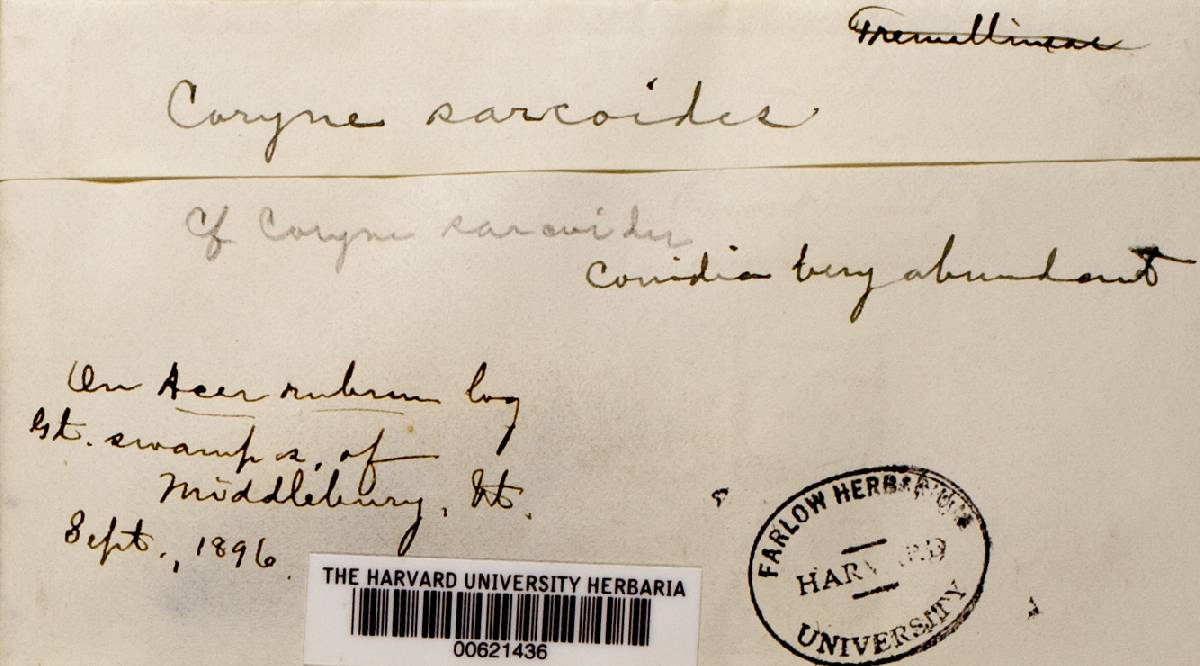 Tremellineae
Coryne sarcoides
Cf Coryne sarcoides
Conidia very abundant
On Acer rubrum log
Gt. swamp s. of
Middlebury, Vt.
Sept., 1896.
THE HARVARD UNIVERSITY HERBARIA
00621436
FARLOW HERBARIUM
HARVARD
UNIVERSITY